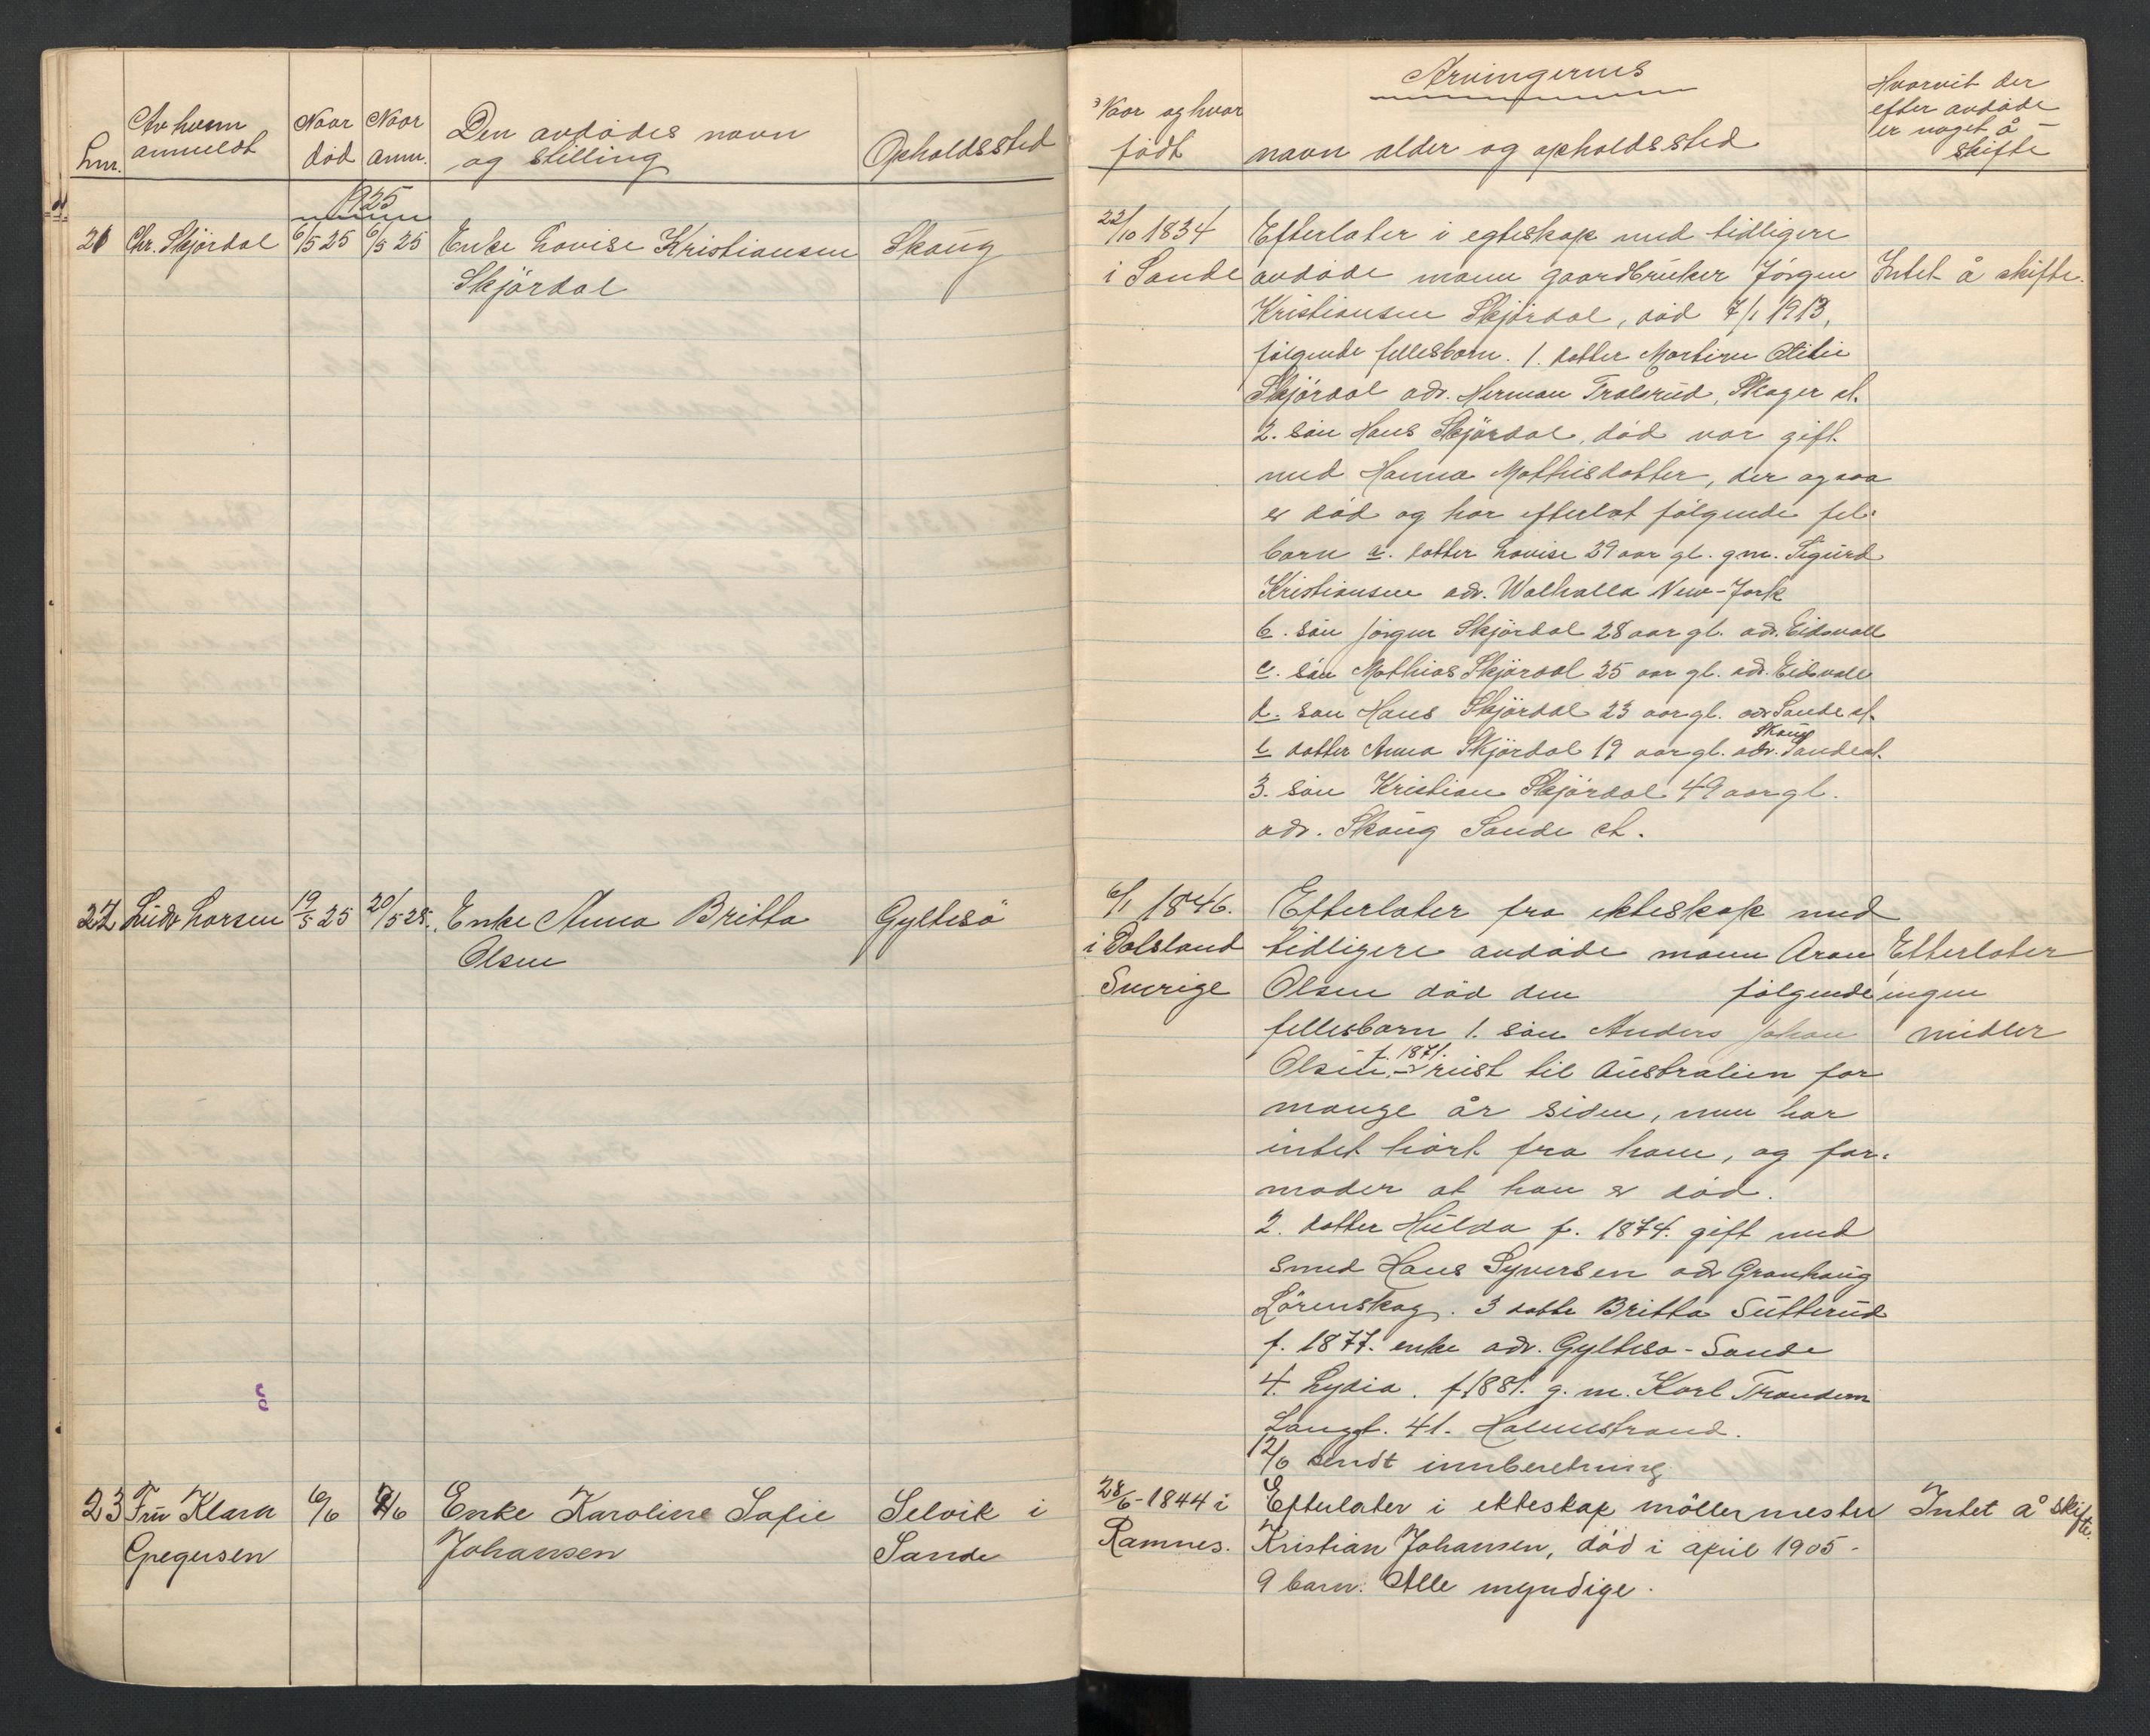 Lnr.
Av hvem
anmeldt
Naar
død
Naar
anm.
Den avdødes navn
og stilling
Opholdssted
Naar og hvor
født
Arvingernes
navn alder og opholdssted
Hvorvit der
efter avdøde
er noget å
skifte
1925
21 Chr. Skjördal 6/5 25 6/5 25 Enke Lovise Kristiansen Skaug
Skjördal
22/10 1834 Efterlater i egteskap med tidligere
i Sande avdøde mann gaardbruker Jörgen Intet å skifte.
Kristiansen Skjördal, död 7/1 1913,
følgende fellesbarn. 1. datter Martine Otilie
Skjördal adr. Herman Tralsrud, Skoger st.
2. sön Hans Skjördal, död var gift
med Hanna Mathisdatter, der ogsaa
er död og har efterlat følgende fel.
barn a. datter Lovise 29 aar gl. g.m. Sigurd
Kristiansen adr. Walhalla New-Jork
b. sön Jörgen Skjördal 28 aar gl. adr. Eidsvall
c. sön Mathias Skjördal 25 aar gl. adr. Eidsvall
d. sön Hans Skjördal 23 aar gl. adr Sande st.
Skaug
e datter Anna Skjördal 19 aar gl. adr. Sande st.
3. sön Kristian Skjördal 49 aar gl.
adr. Skaug Sande st.
22 Ludv Larsen 19/5 25 20/5 25. Enke Anna Britta Gyltesö
Olsen
6/1 1846. Efterlater fra ekteskap med
i Dalsland tidligere avdøde mann Aron Efterlater
Sverige Olsen död den følgende ingen
fellesbarn 1. sön Anders Johan midler
f. 1871.
Olsen, reist til Australien for
mange år siden, men har
intet hört fra ham, og for-
moder at han er död.
2. datter Hulda f. 1874. gift med
smed Hans Syversen adr Granhaug
Lörenskog. 3 datte Britta Sutterud
f. 1877. enke adr. Gylteso - Sande
4. Lydia. f. 1881. g. m. Karl Trandem
Langgt. 41. Holmestrand.
12/6 sendt innberetning
23 Fru Klara 6/6 9/6 Enke Karoline Sofie Selvik i
Gregersen Johansen Sande
28/6-1844 i Efterlater i ekteskap möllermester Intet å skifte.
Ramnes. Kristian Johansen, död i april 1905 -
9 barn. Alle myndige.